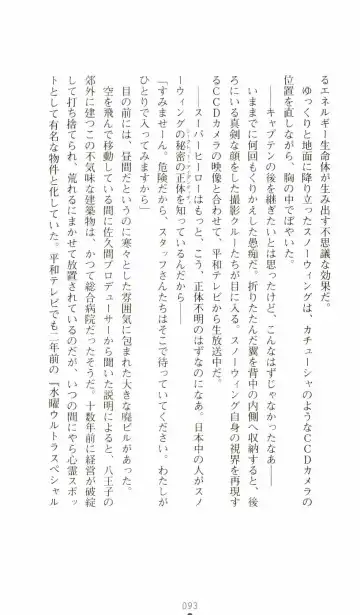 るエネルギー生命体が生み出す不思議な効果だ。
　ゆっくりと地面に降り立ったスノーウィングは、カチューシャのようなCCDカメラの
位置を直しながら、胸の中でぼやいた。
　――キャプテンの後を継ぎたいとは思ったけど、こんなはずじゃなかったなあ――
　いままでに何回もくりかえした愚痴だ。折りたたんだ翼を背中の内側へ収納すると、後
ろにいる真剣な顔をした撮影クルーたちが目に入る。スノーウィング自身の視界を再現す
るCCDカメラの映像と合わせて、平和テレビから生放送中だ。
　――スーパーヒーローはもっと、こう、正体不明のはずなのになあ。日本中の人がスノ
ーウィングの秘密の正体を知っているんだから――
「すみませーん。危険だから、スタッフさんたちはそこで待っていてください。わたしが
ひとりで入ってみますから」
　目の前には、昼間だというのに寒々とした雰囲気に包まれた大きな廃ビルがあった。
　空を飛んで移動している間に佐久間プロデューサーから聞いた説明によると、八王子の
郊外に建つこの不気味な建築物は、かつて総合病院だったそうだ。十数年前に経営が破綻
して打ち捨てられ、荒れるにまかせて放置されているのだが、いつの間にやら心霊スポッ
トとして有名な物件と化していた。平和テレビでも二年前の『水曜ウルトラスペシャル
093